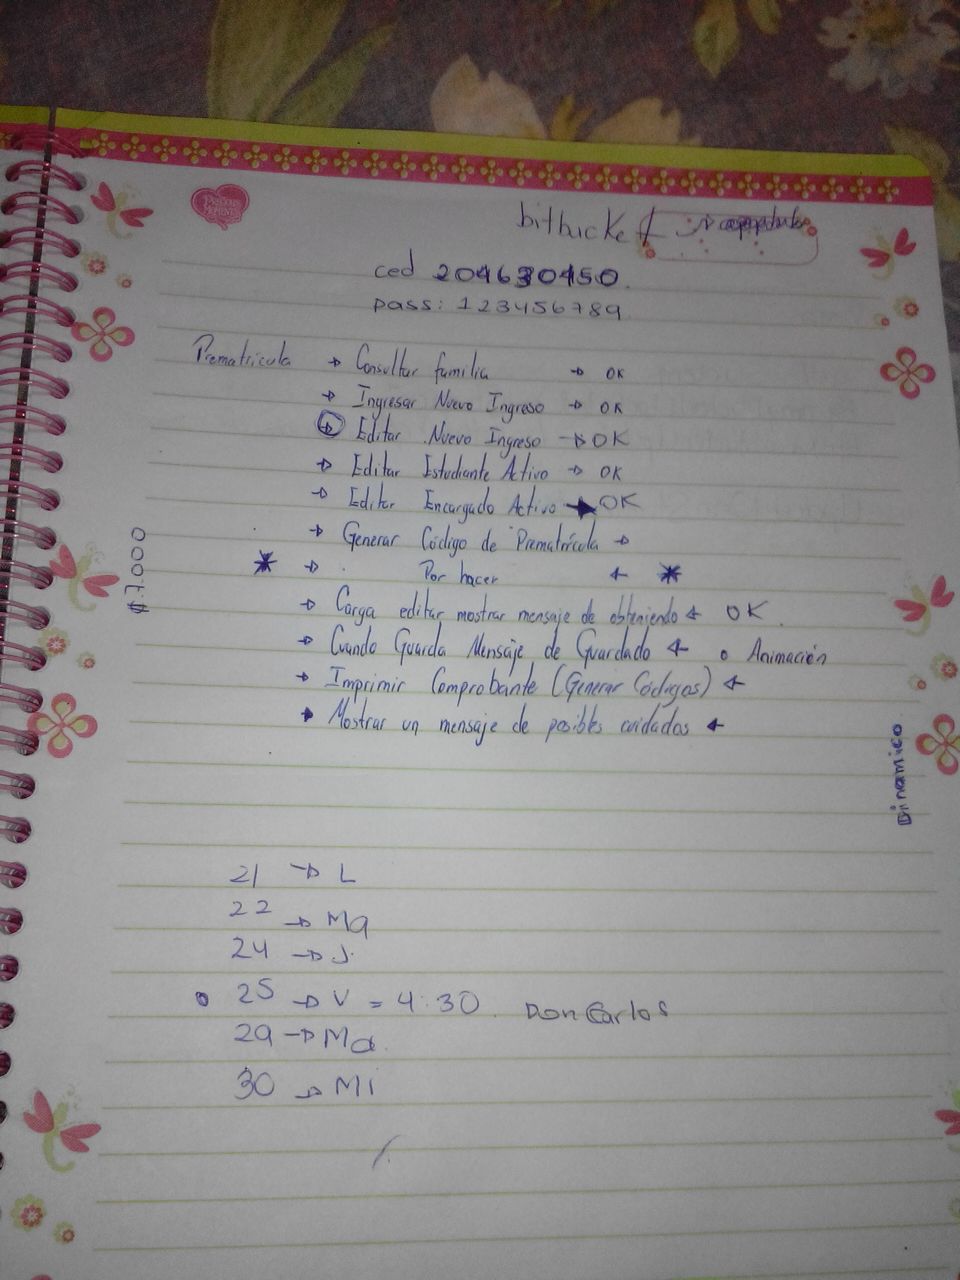 PRECIOUS MOMENTS
bitbucket
ced 204630450.
pass: 123456789
Prematricula → Consultar familia → OK
→ Ingresar Nuevo Ingreso → OK
→ Editar Nuevo Ingreso → OK
→ Editar Estudiante Activo → OK
→ Editar Encargado Activo → OK
→ Generar Código de Prematrícula →
* → . Por hacer ← *
→ Carga editar mostrar mensaje de obteniendo ← OK.
→ Cuando Guarda Mensaje de Guardado ← o Animación
→ Imprimir Comprobante (Generar Códigos) ←
→ Mostrar un mensaje de posibles cuidados ←
$.7.000
Dinamico.
21 → L
22 → Ma
24 → J.
25 → V = 4:30. Don Carlos
29 → Ma.
30 → Mi